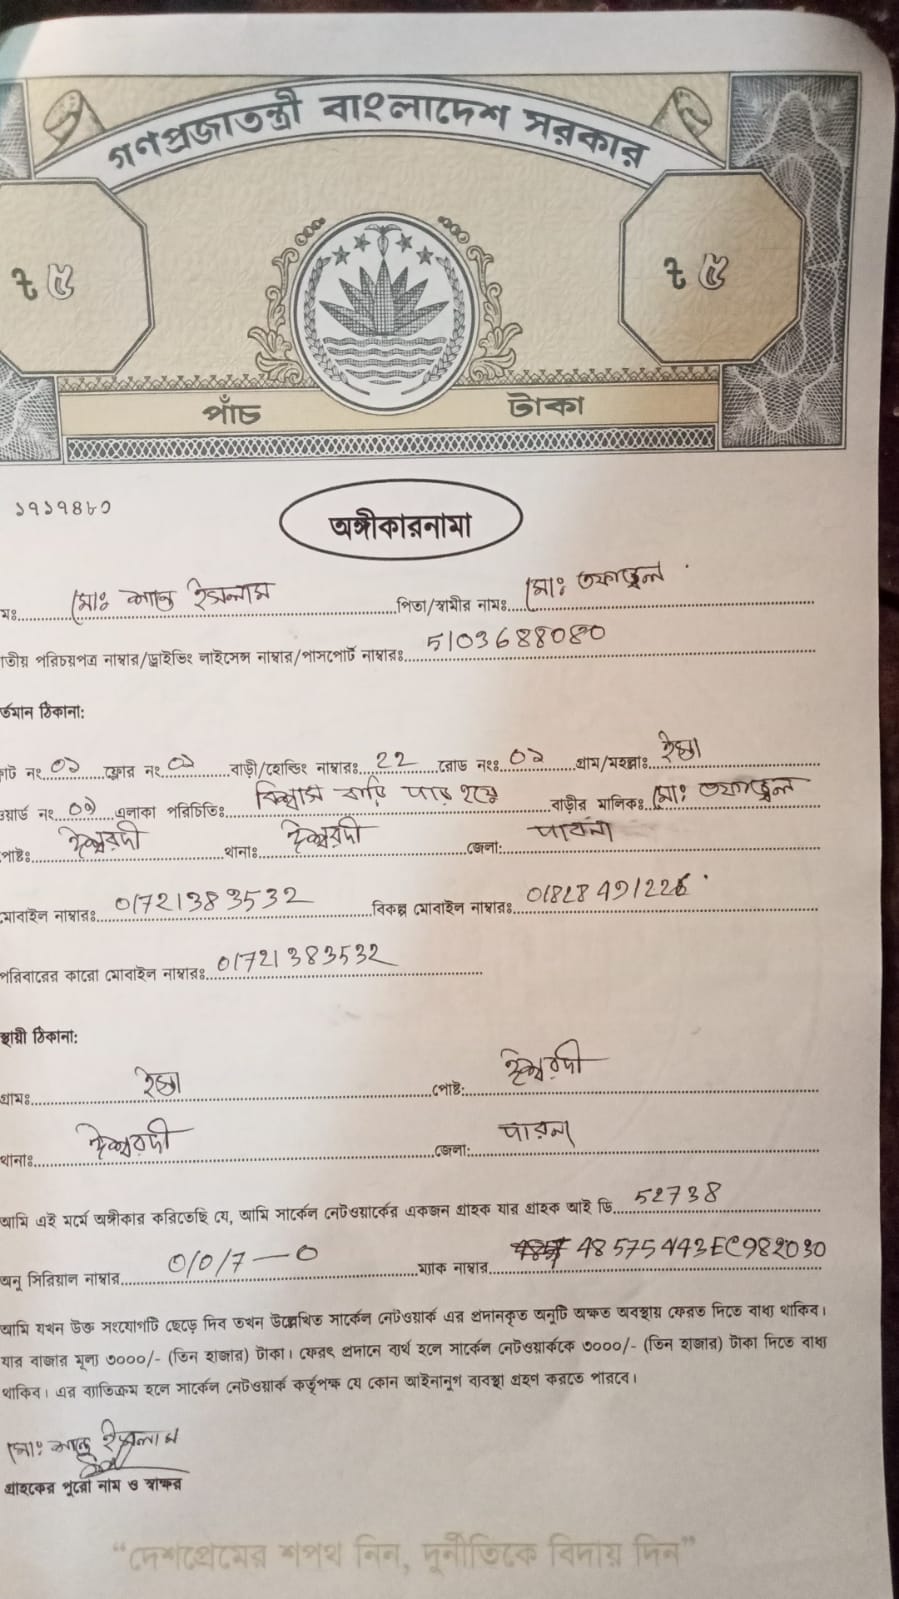 গণপ্রজাতন্ত্রী বাংলাদেশ সরকার
৳ ৫ ৳ ৫
পাঁচ টাকা
১৭১৭৪৮০
অঙ্গীকারনামা
মঃ মোঃ ইসলাম পিতা/স্বামীর নামঃ মোঃ
তীয় পরিচয়পত্র নাম্বার/ড্রাইভিং লাইসেন্স নাম্বার/পাসপোর্ট নাম্বারঃ 5103688080
র্তমান ঠিকানা:
নং ০১ ফ্লোর নং ০১ বাড়ী/হোল্ডিং নাম্বারঃ 22 রোড নংঃ ০১ গ্রাম/মহল্লাঃ
ওয়ার্ড নং এলাকা পরিচিতিঃ বিশ্বাস বাড়ি বাড়ীর মালিকঃ মোঃ
পোষ্টঃ ঈশ্বরদী থানাঃ ঈশ্বরদী জেলা: পাবনা
মোবাইল নাম্বারঃ 01721383532 বিকল্প মোবাইল নাম্বারঃ 01828491226
পরিবারের কারো মোবাইল নাম্বারঃ 01721383532
স্থায়ী ঠিকানা:
গ্রামঃ পোষ্ট: ঈশ্বরদী
থানাঃ ঈশ্বরদী জেলা: পাবনা
আমি এই মর্মে অঙ্গীকার করিতেছি যে, আমি সার্কেল নেটওয়ার্কের একজন গ্রাহক যার গ্রাহক আই ডি 52738
অনু সিরিয়াল নাম্বার 0/0/7-0 ম্যাক নাম্বার 48575443EC982030
আমি যখন উক্ত সংযোগটি ছেড়ে দিব তখন উল্লেখিত সার্কেল নেটওয়ার্ক এর প্রদানকৃত অনুটি অক্ষত অবস্থায় ফেরত দিতে বাধ্য থাকিব।
যার বাজার মূল্য ৩০০০/- (তিন হাজার) টাকা। ফেরৎ প্রদানে ব্যর্থ হলে সার্কেল নেটওয়ার্ককে ৩০০০/- (তিন হাজার) টাকা দিতে বাধ্য
থাকিব। এর ব্যতিক্রম হলে সার্কেল নেটওয়ার্ক কর্তৃপক্ষ যে কোন আইনানুগ ব্যবস্থা গ্রহণ করতে পারবে।
মোঃ ইসলাম
গ্রাহকের পুরো নাম ও স্বাক্ষর
“দেশপ্রেমের শপথ নিন, দুর্নীতিকে বিদায় দিন”